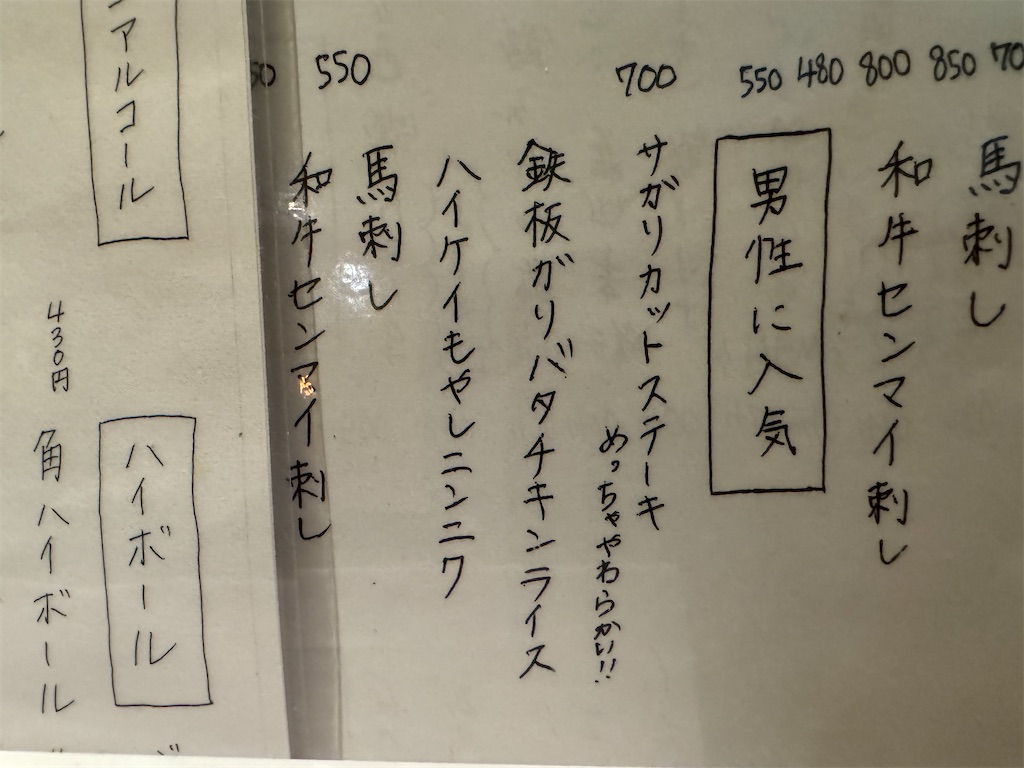 70
850
800
480
550
700
550
50
馬刺し
和牛センマイ刺し
男性に人気
サガリカットステーキ
めっちゃやわらかい!!
鉄板ガリバタチキンライス
ハイケイもやしニンニク
馬刺し
和牛センマイ刺し
アルコール
ハイボール
430円
角ハイボール